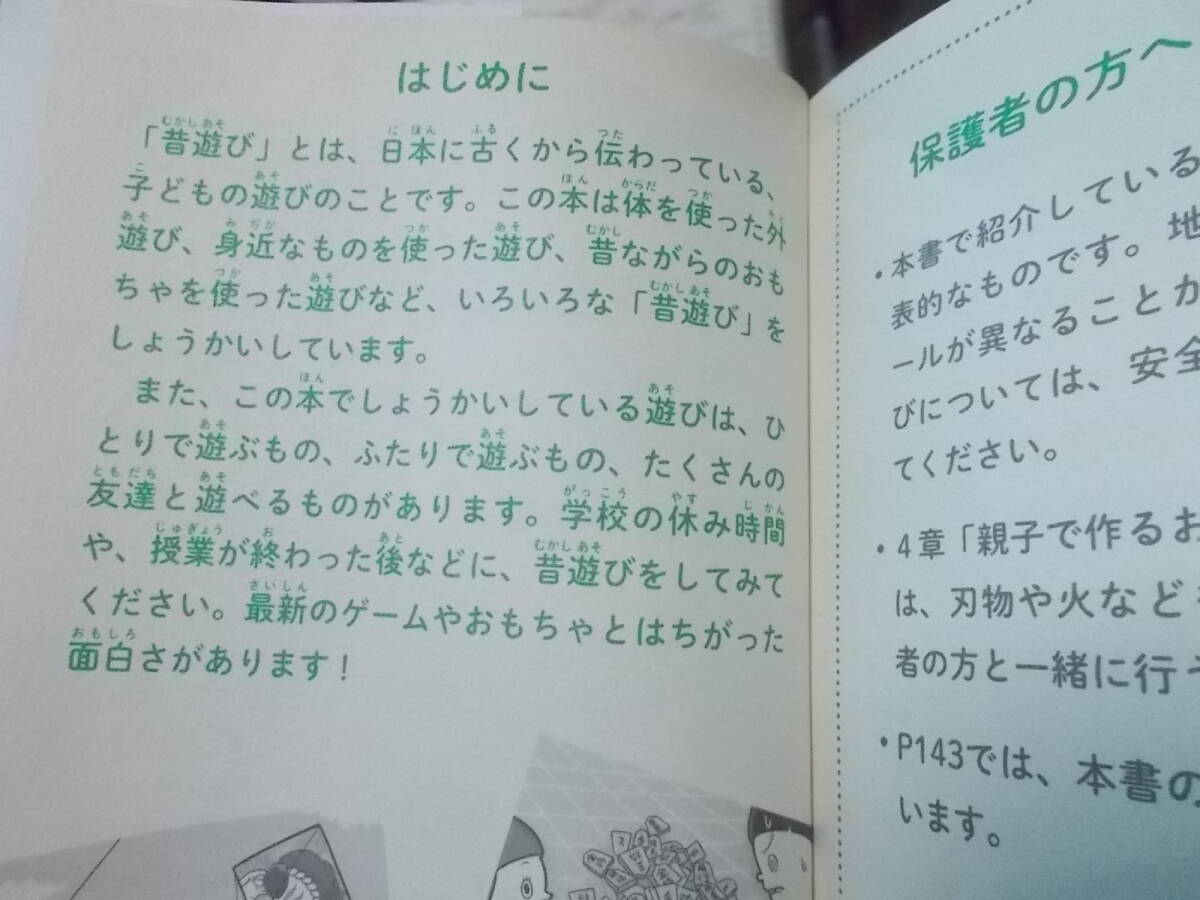 はじめに
「昔遊び」とは、日本に古くから伝わっている、
子どもの遊びのことです。この本は体を使った外
遊び、身近なものを使った遊び、昔ながらのおも
ちゃを使った遊びなど、いろいろな「昔遊び」を
しょうかいしています。
また、この本でしょうかいしている遊びは、ひ
とりで遊ぶもの、ふたりで遊ぶもの、たくさんの
友達と遊べるものがあります。学校の休み時間
や、授業が終わった後などに、昔遊びをしてみて
ください。最新のゲームやおもちゃとはちがった
面白さがあります!
保護者の方へ
・本書で紹介している
表的なものです。地
ールが異なることか
びについては、安全
てください。
・4章「親子で作るお
は、刃物や火など
者の方と一緒に行う
・P143では、本書の
います。